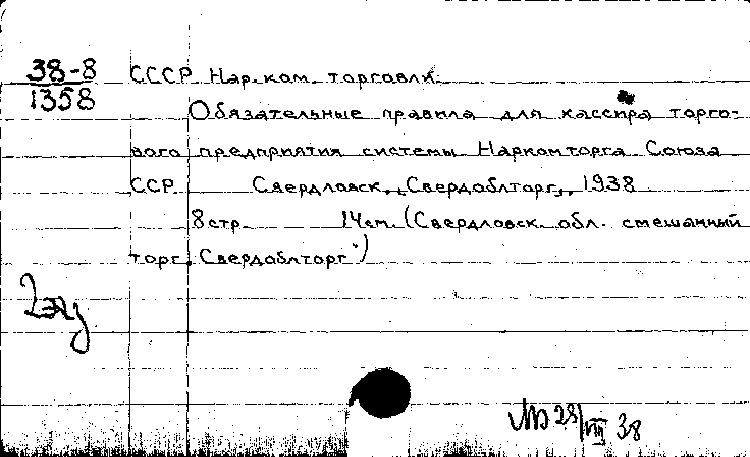 38-8
1358
СССР Нар. ком. торговли.
Обязательные правила для кассира торго-
вого предприятия системы Наркомторга Союза
ССР. Свердловск, "Свердоблторг", 1938.
8 стр. 14 см. (Свердловск. обл. смешанный
торг "Свердоблторг")
2 экз
28/VIII 38